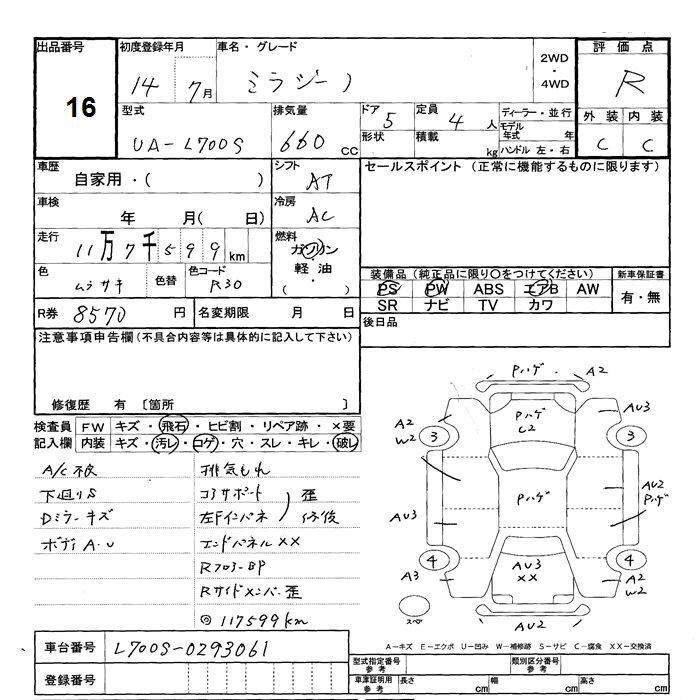 出品番号
16
初度登録年月
14 7月
車名・グレード
ミラジーノ
2WD
・
4WD
評価点
R
型式
UA-L700S
排気量
660 cc
ドア 5
形状
定員 4 人
積載 kg
ディーラー・並行
モデル
年式 年
ハンドル 左・右
外装 内装
C C
車歴
自家用・( )
シフト
AT
セールスポイント (正常に機能するものに限ります)
車検
年 月( 日)
冷房
AC
走行
11万7千599km
燃料
ガソリン
軽油
( ・ )
色
ムラサキ
色替
色コード
R30
装備品(純正品に限り〇をつけてください)
新車保証書
PS PW ABS エアB AW
SR ナビ TV カワ
有・無
R券 8570 円
名変期限 月 日
後日品
注意事項申告欄(不具合内容等は具体的に記入して下さい)
修復歴 有 〔箇所 〕
検査員
記入欄
FW キズ・飛石・ヒビ割・リペア跡・×要
内装 キズ・汚レ・コゲ・穴・スレ・キレ・破レ
A/C不良
下廻りS
Dミラーキズ
ボディA.U
排気もれ
コアサポート
左Fインパネ
歪
修後
エンドパネルXX
R7ロスーBP
Rサイドメンバー歪
◎117599km
Pハゲ A2
Pハゲ
U2
AU3
A2
W2
3
3
Pハゲ
AU2
Pハゲ
AU3
4
4
A3
AU3
XX
A2
W2
スペア
AU2
A-キズ E-エクボ U-凹み W-補修跡 S-サビ C-腐食 XX-交換済
車台番号 L700S-0293061
登録番号
型式指定番号
参考
類別区分番号
参考
車庫証明用
参考
長さ cm
幅 cm
高さ cm